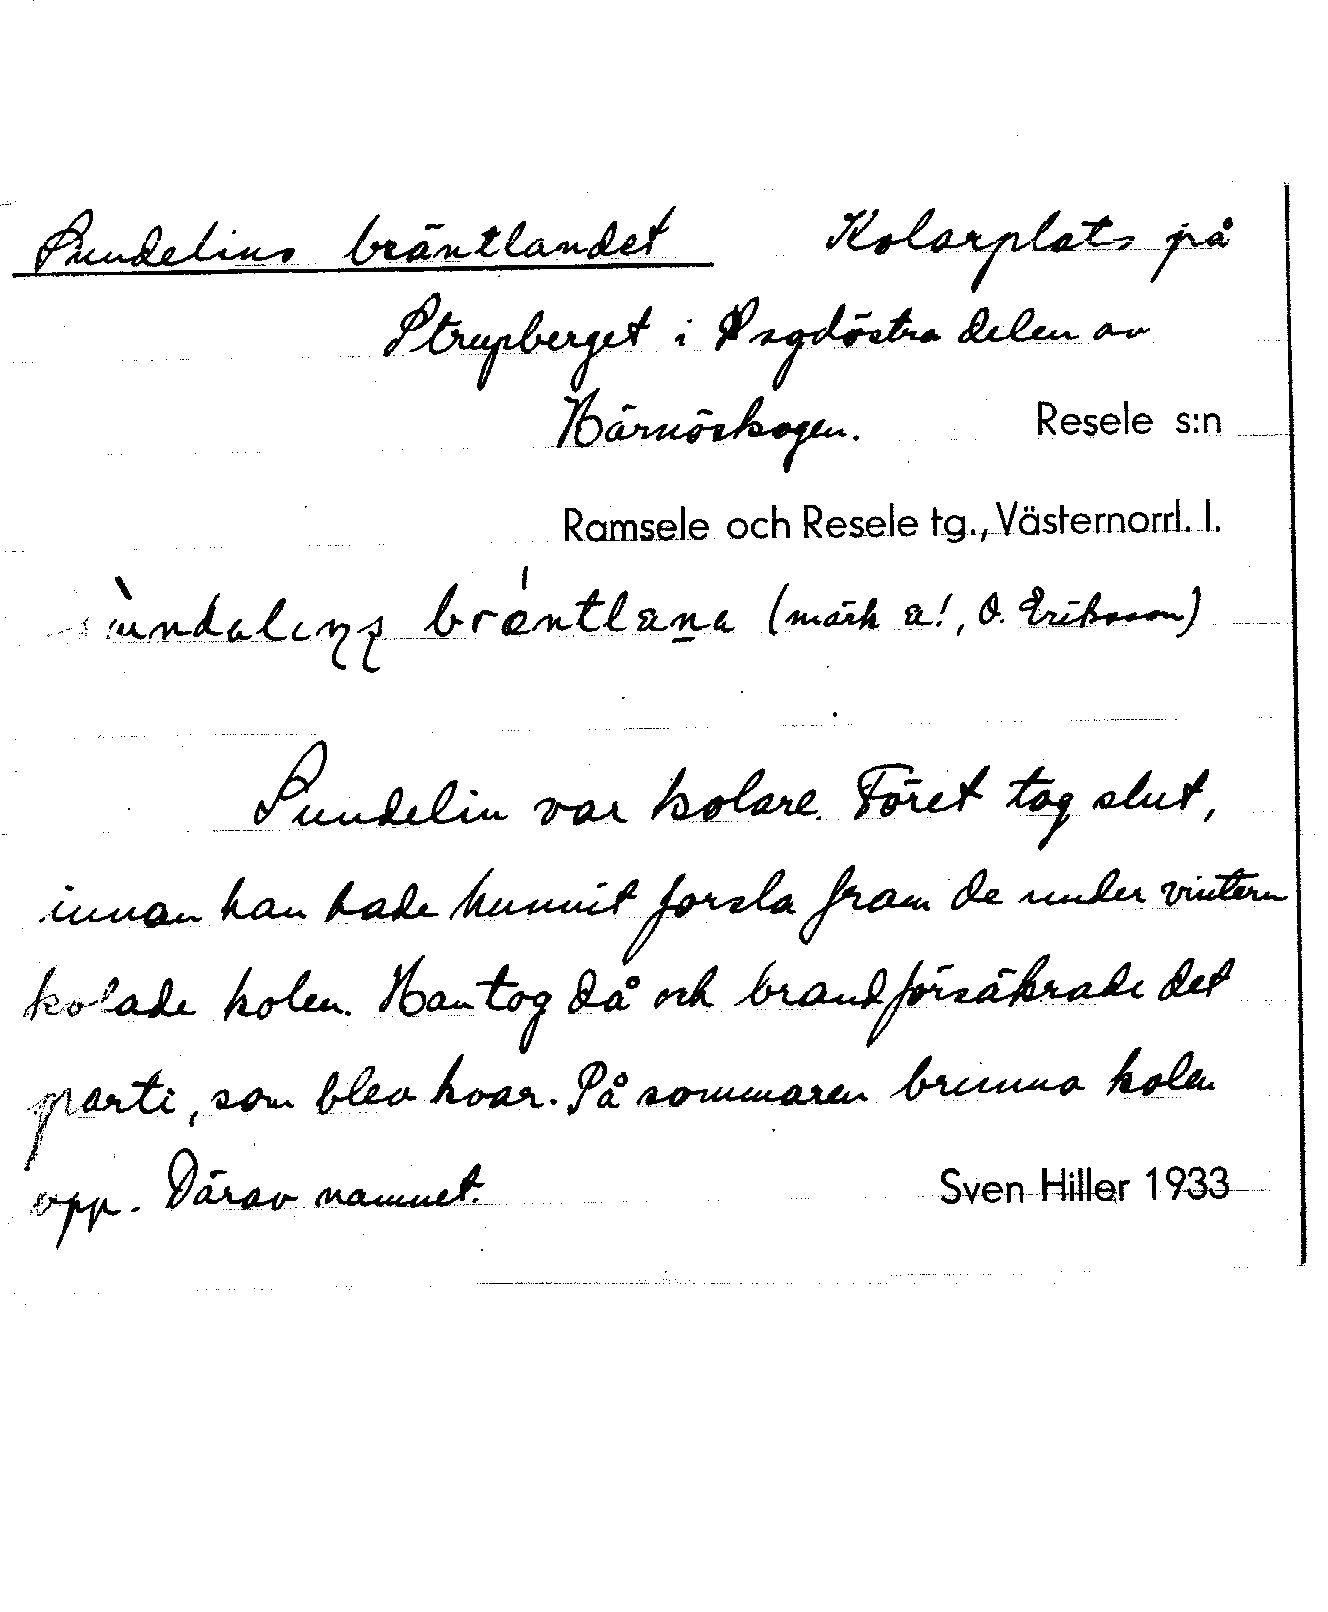 Sundelins bräntlandet Kolarplats på
Strupberget i sydöstra delen av
Härnöskogen. Resele s:n
Ramsele och Resele tg., Västernorrl. l.
(märk a!, O. Eriksson)
Sundelin var kolare. Föret tog slut,
innan han hade hunnit forsla fram de under vintern
kolade kolen. Han tog då och brandförsäkrade det
parti, som blev kvar. På sommaren brunno kolen
opp. Därav namnet. Sven Hiller 1933